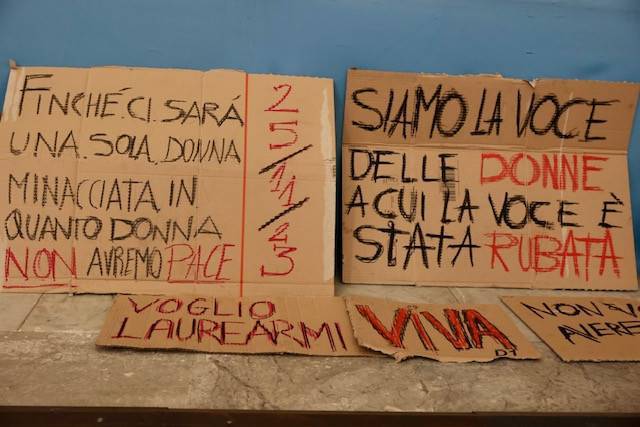 FINCHÉ.CI.SARÁ
UNA.SOLA.DONNA
MINACCIATA IN
QUANTO DONNA
NON AVREMO PACE
25/11/23
SIAMO LA VOCE
DELLE DONNE
A CUI LA VOCE È
STATA RUBATA
VOGLIO
LAUREARMI
VIVA
NON
AVERE